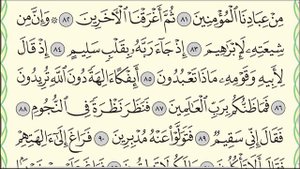 مِنْ عِبَادِنَا ٱلْمُؤْمِنِينَ ٨١ ثُمَّ أَغْرَقْنَا ٱلْآخَرِينَ ٨٢ ۞ وَإِنَّ مِن
شِيعَتِهِۦ لَإِبْرَٰهِيمَ ٨٣ إِذْ جَآءَ رَبَّهُۥ بِقَلْبٍ سَلِيمٍ ٨٤ إِذْ قَالَ
لِأَبِيهِ وَقَوْمِهِۦ مَاذَا تَعْبُدُونَ ٨٥ أَئِفْكًا ءَالِهَةً دُونَ ٱللَّهِ تُرِيدُونَ
٨٦ فَمَا ظَنُّكُم بِرَبِّ ٱلْعَٰلَمِينَ ٨٧ فَنَظَرَ نَظْرَةً فِى ٱلنُّجُومِ ٨٨
فَقَالَ إِنِّى سَقِيمٌ ٨٩ فَتَوَلَّوْا۟ عَنْهُ مُدْبِرِينَ ٩٠ فَرَاغَ إِلَىٰٓ ءَالِهَتِهِمْ